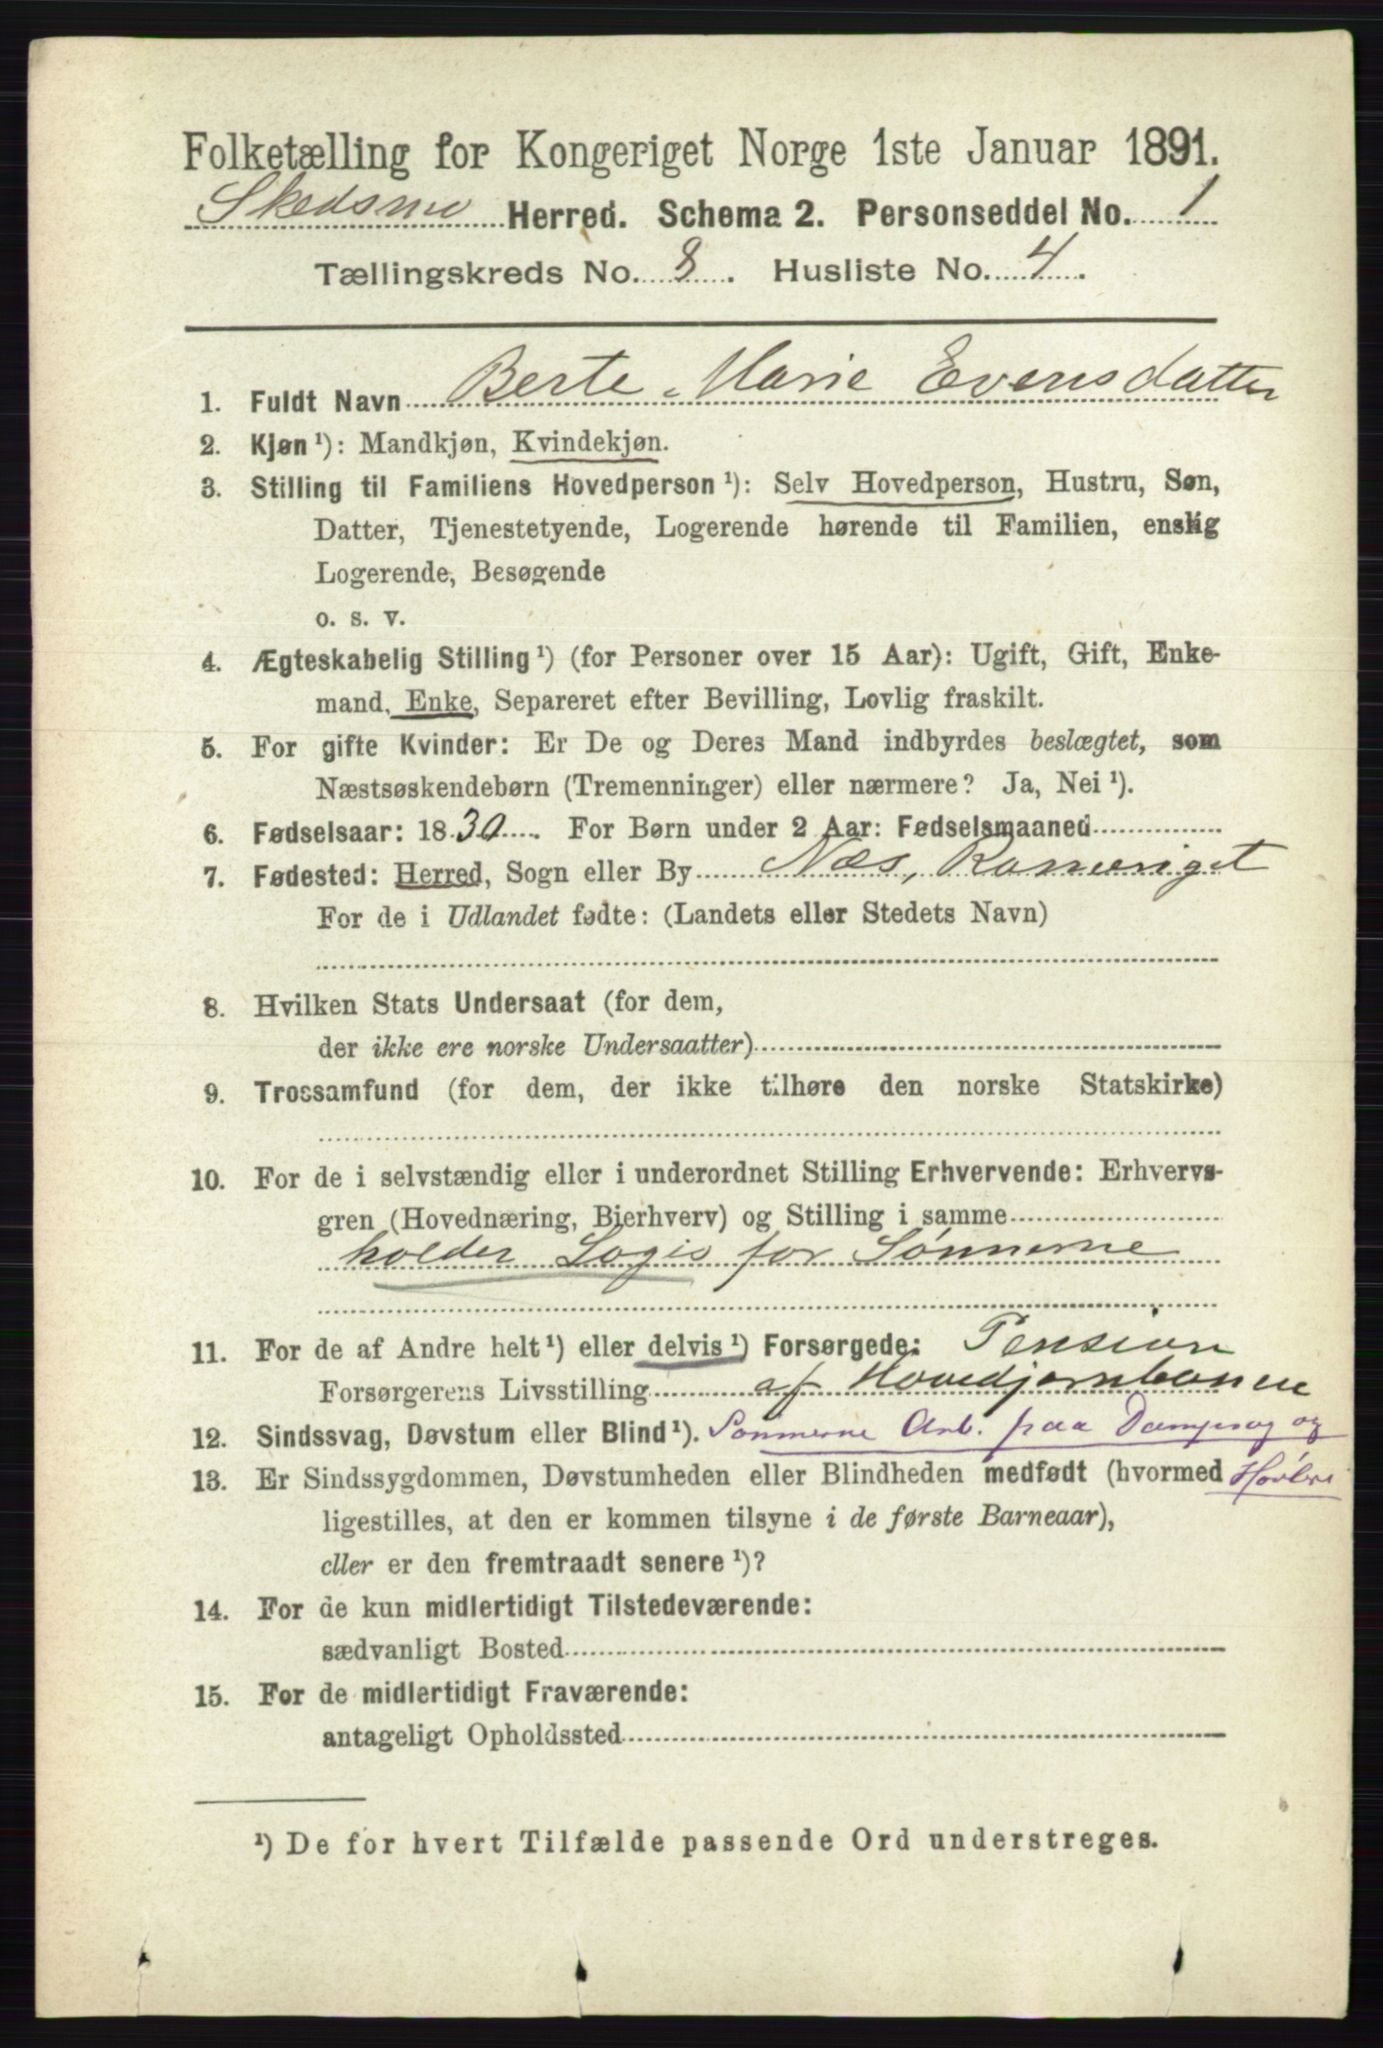 Folketælling for Kongeriget Norge 1ste Januar 1891.
Skedsmo Herred. Schema 2. Personseddel No. 1
Tællingskreds No. 8. Husliste No. 4.
1. Fuldt Navn Berte Marie Evensdatter
2. Kjøn ¹): Mandkjøn, Kvindekjøn.
3. Stilling til Familiens Hovedperson ¹): Selv Hovedperson, Hustru, Søn,
Datter, Tjenestetyende, Logerende hørende til Familien, enslig
Logerende, Besøgende
o. s. v.
4. Ægteskabelig Stilling ¹) (for Personer over 15 Aar): Ugift, Gift, Enke-
mand, Enke, Separeret efter Bevilling, Lovlig fraskilt.
5. For gifte Kvinder: Er De og Deres Mand indbyrdes beslægtet, som
Næstsøskendebørn (Tremenninger) eller nærmere? Ja, Nei ¹).
6. Fødselsaar: 1830. For Børn under 2 Aar: Fødselsmaaned
7. Fødested: Herred, Sogn eller By Næs, Romeriget
For de i Udlandet fødte: (Landets eller Stedets Navn)
8. Hvilken Stats Undersaat (for dem,
der ikke ere norske Undersaatter)
9. Trossamfund (for dem, der ikke tilhøre den norske Statskirke)
10. For de i selvstændig eller i underordnet Stilling Erhvervende: Erhvervs-
gren (Hovednæring, Bierhverv) og Stilling i samme
holder Logis for Sønnerne
11. For de af Andre helt ¹) eller delvis ¹) Forsørgede: Pension
Forsørgerens Livsstilling af Hovedjernbanen
12. Sindssvag, Døvstum eller Blind ¹). Sønnerne Arb. paa Dampsag og
13. Er Sindssygdommen, Døvstumheden eller Blindheden medfødt (hvormed Høvleri
ligestilles, at den er kommen tilsyne i de første Barneaar),
eller er den fremtraadt senere ¹)?
14. For de kun midlertidigt Tilstedeværende:
sædvanligt Bosted
15. For de midlertidigt Fraværende:
antageligt Opholdssted
¹) De for hvert Tilfælde passende Ord understreges.